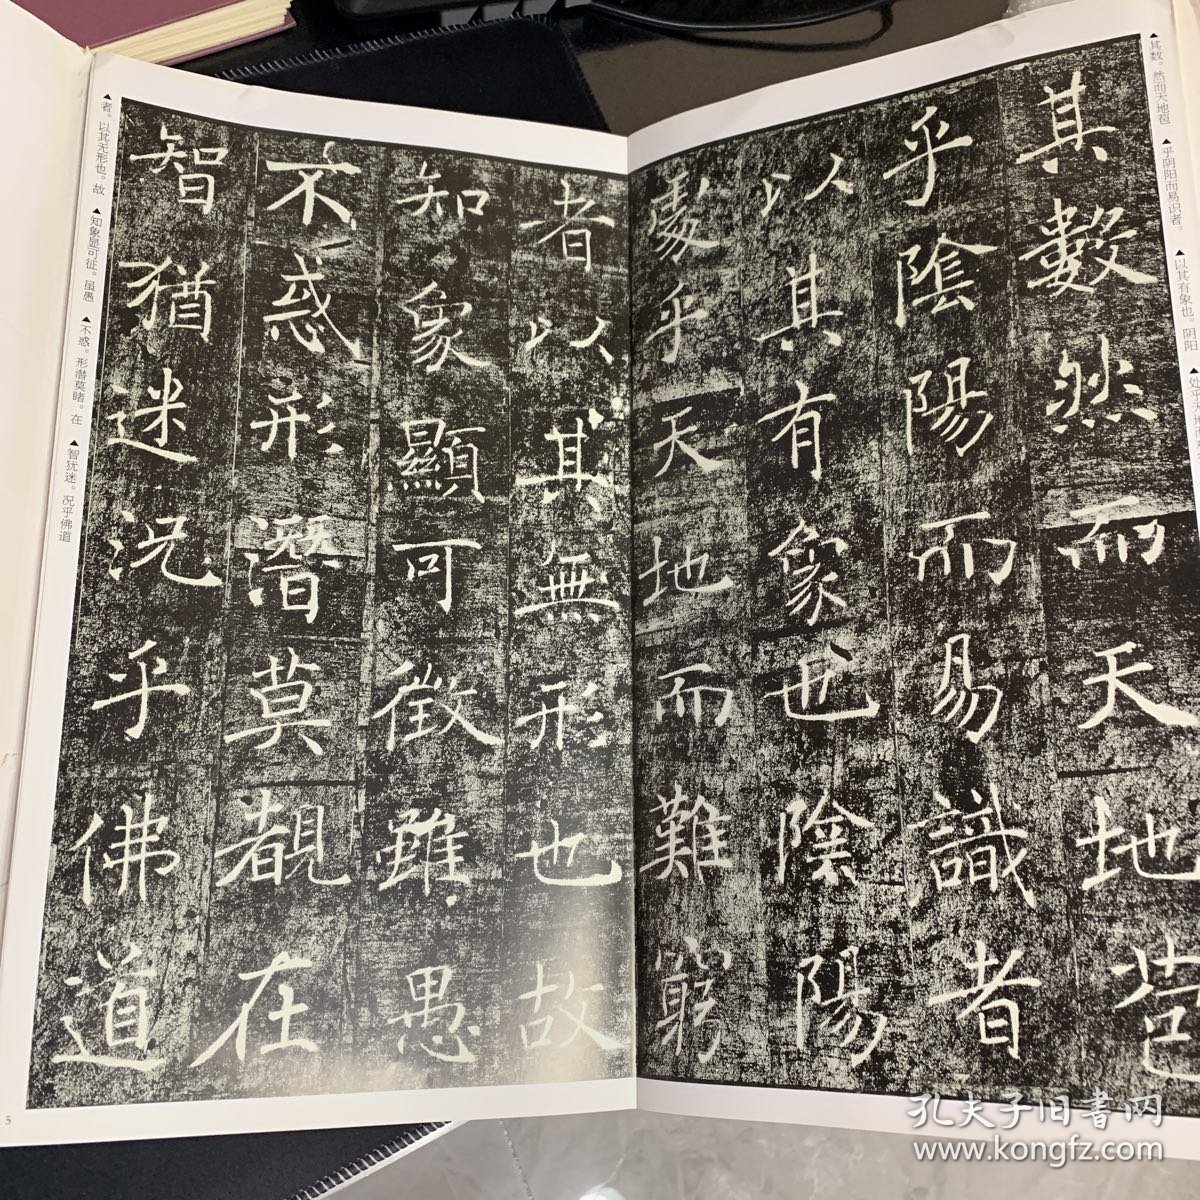 ▲其数。然而天地苞 ▲乎阴阳而易识者。 ▲以其有象也。阴阳 ▲处乎天地而
其數然而天地苞
乎陰陽而易識者
以其有象也陰陽
處乎天地而難窮
者以其無形也故
知象顯可徵雖愚
不惑形潛莫覩在
智猶迷況乎佛道
▲者。以其无形也。故 ▲知象显可征。虽愚 ▲不惑。形潜莫睹。在 ▲智犹迷。况乎佛道
5
孔夫子旧书网
www.kongfz.com